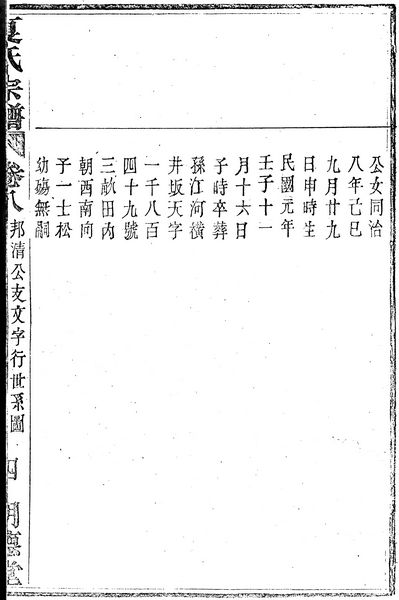 公女同治
八年己巳
九月廿九
日申時生
民國元年
壬子十一
月十六日
子時卒葬
孫江河橫
井坂天字
一千八百
四十九號
三畝田內
朝西南向
子一士松
幼殤無嗣
夏氏宗譜 卷八 邦清公支文字行世系圖 四 明德堂